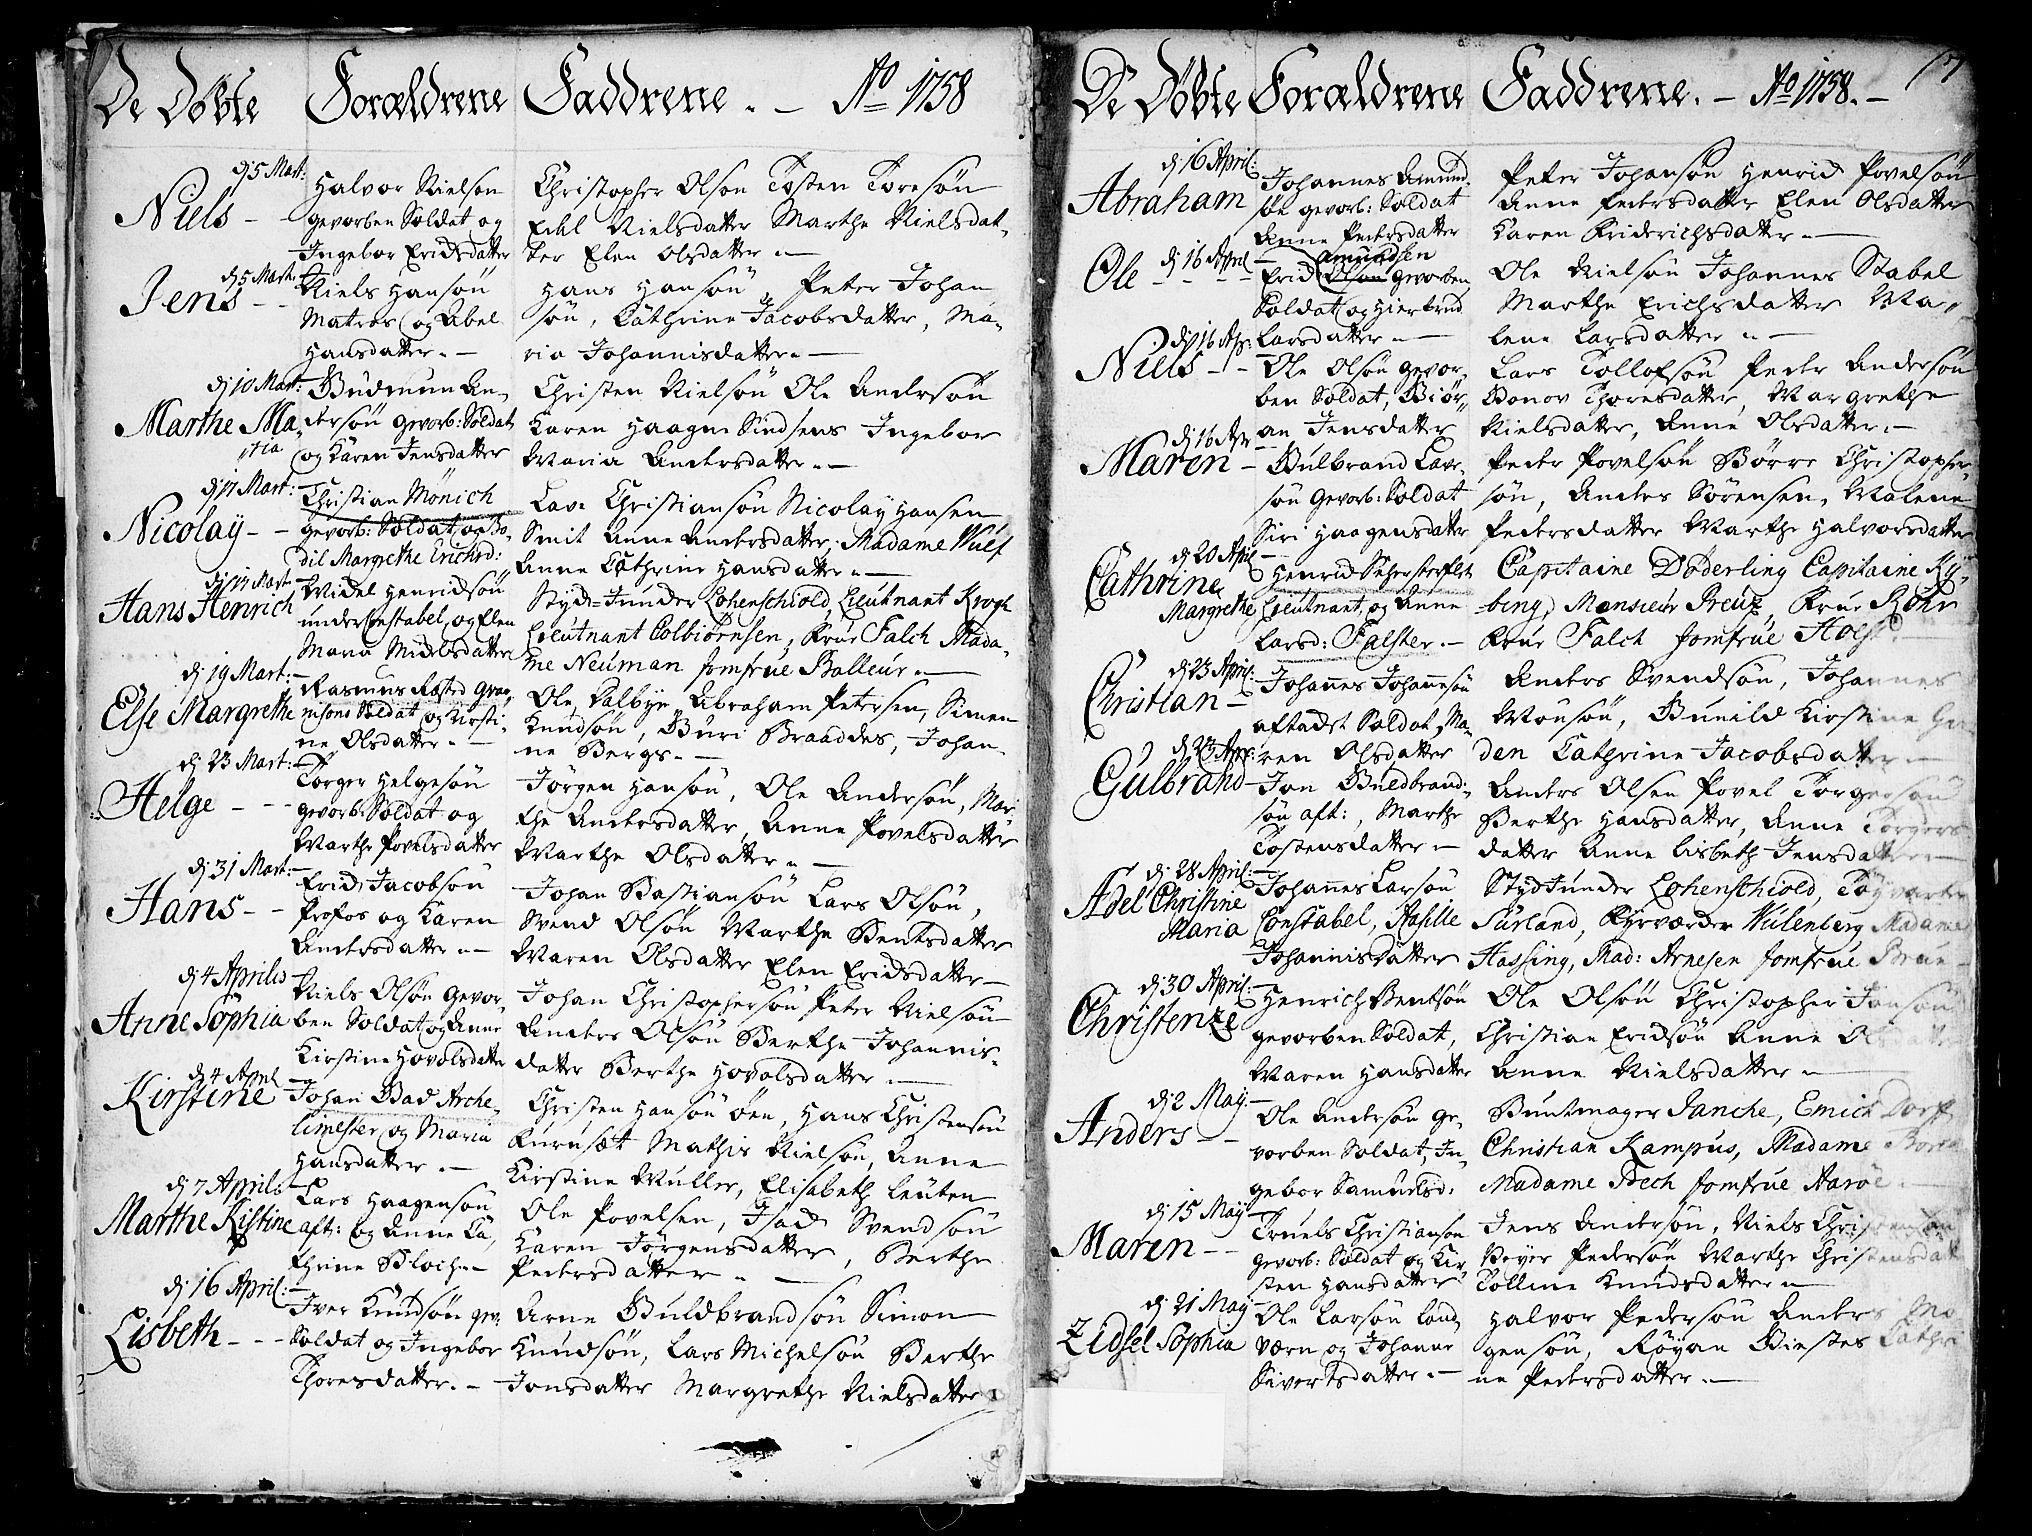 De Döbte Forældrene Faddrene. - Ao 1758
dj 5 Mart:
Niels -
Halvor Nielsen
gevorben Soldat og
Ingebor Erichsdatter
Christopher Olsen Tosten Toresön
Nielsdatter Marthe Nielsdat-
ter Elen Olsdatter
dj 5 Mart:
Jens - -
Niels Hansön
Matros og Abel
Hansdatter. -
Hans Hansön, Peter Johan
sön, Cathrine Jacobsdatter, Ma-
ria Johannisdatter. -
dj 10 Mart:
Marthe Ma-
ria
Gudmun An-
dersön gevorb: Soldat
og Karen Jensdatter
Christen Nielsön Ole Andersön
Karen Haagne Ingebor
Maria Andersdatter. -
dj 17 Mart:
Nicolaÿ - -
Christian Mönich
gevorb: Soldat og Bo-
dil Margrethe Erichsd:
Lars Christiansön Nicolaÿ Hansen
Smit Anne Andersdatter, Madame Wulf
Anne Cathrine Hansdatter. -
dj 17 Mart
Hans Henrich
Midel Henrichsön
under Constabel, og Elen
Maria Midelsdatter
Styck-Juncker Lohenschiold, Lieutnant Krogh
Lieutnant Colbiörnsen, Frue Falch Mada-
me Neuman Jomfrue Balleur. -
dj 19 Mart:
Else Margrethe
Rasmus Ræsted guar-
nisons Soldat og Kirsti-
ne Olsdatter. -
Ole Dalbye Abraham Petersen, Simen
Knudsön, Guri Braaddes, Johan-
ne Bergs. -
dj 23 Mart:
Helge - - -
Torger Helgesön
gevorb: Soldat og
Marthe Povelsdatter
Jörgen Hansön, Ole Andersön, Mar
the Andersdatter, Anne Povelsdatter
Marthe Olsdatter. -
dj 31 Mart:
Hans - -
Erich Jacobsön
Profos og Karen
Andersdatter. -
Johan Bastiansön Lars Olsön,
Svend Olsön Marthe Bentsdatter
Maren Olsdatter Elen Erichsdatter -
dj 4 Aprilis
Anne Sophia
Niels Olsön gevor
ben Soldat og Anne
Kirstine Hovolsdatter
Johan Christophersön Peter Nielsön
Anders Olsön Berthe Johannis-
datter Berthe Hovolsdatter. -
dj 4 April
Kirstine
Johan Bad Arche-
limester og Maria
Hansdatter. -
Christen Hansön öen, Hans Christensön
Kurusæt Mathis Nielsön, Anne
Kirstine Muller, Elisabeth Leuten
dj 7 Aprilis
Marthe Kistine
Lars Haagensön
aft: og Anne Ca-
thrine Bloch. -
Ole Povelsen, Isach Svendsön
Karen Jörgensdatter, Berthe
Pedersdatter. -
dj 16 April:
Lisbeth - - -
Iver Knudsön gev:
Soldat og Ingebor
Thoresdatter. -
Arne Guldbrandsön Simon
Knudsön, Lars Michelsön Berthe
Jonsdatter Margrethe Nielsdatter
De Döbte Forældrene Faddrene. - Ao 1758. -
dj 16 April:
Abraham
Johannes Amund-
sön gevorb: Soldat
Anne Pedersdatter
Peter Johansön Henrich Povelsön
Anne Pedersdatter Elen Olsdatter
Karen Friderichsdatter. -
dj 16 April
Ole - - - -
Amundsen
Erich Olsön gevorben
Soldat og Hiertrud
Larsdatter. -
Ole Nielsön Johannes Stabel
Marthe Erichsdatter Ma-
lene Larsdatter. -
dj 16 Apr:
Niels - - -
Ole Olsön gevor-
ben Soldat, Giör-
an Jensdatter
Lars Tollofsön Peder Andersön
Gonov Thoresdatter, Margrethe
Nielsdatter, Anne Olsdatter. -
dj 16 Apr
Maren -
Gulbrand Lars-
sön gevorb: Soldat
Siri Haagensdatter
Peder Povelsön Börre Christopher-
sön, Anders Sörensen, Malene
Pedersdatter Marthe Halvorsdatter
dj 20 April
Cathrine
Margrethe
Henrich
Lieutnant, og Anne
Larsd: Falster. -
Capitaine Döderling Capitaine Ry-
bing, Monsieur Preuz, Frue Röhr
Frue Falch Jomfrue Holst
dj 23 April:
Christian -
Johannes Johannesön
aftadt Soldat, Ma-
ren Olsdatter
Anders Svendsön, Johannes
Monsön, Gunild Kirstine
den Cathrine Jacobsdatter -
dj 23 Apr:
Gulbrand -
Jon Guldbrand-
sön aft:, Marthe
Tostensdatter -
Anders Olsen Povel Torgersön
Berthe Hansdatter, Anne Torgers
datter Anne Lisbeth Jensdatter -
dj 28 April:
Adel Christine
Maria
Johannes Larsön
Constabel, Sasille
Johannisdatter
Styckjuncker Lohenschiold, Töyvarter
Surland, Fyrværcker Wulenberg Madame
Hassing, Mad: Arnesen Jomfrue Brun -
dj 30 April:
Christenze
Henrich Bentsön
gevorben Soldat,
Maren Hansdatter
Ole Olsön Christopher Jonsön
Christian Erichsön Anne Olsdatter
Anne Nielsdatter -
dj 2 May
Anders - -
Ole Andersön ge-
vorben Soldat, In-
gebor Samuelsd:
Buntmager Janche, Emick Dorff
Christian Kampus, Madame
Madame Bech Jomfrue Aaröe -
dj 15 May
Maren - -
Truels Christiansön
gevorb: Soldat og Kir-
sten Hansdatter
Jens Andersön, Niels Christensön
Peder Pedersön Marthe Christensdatt
Tolline Knudsdatter. -
dj 21 May
Zidsel Sophia
Ole Larsön Land-
værn og Johanne
Sivertsdatter. -
Halvor Pedersön Anders Mo
gensön, Röyan Giestes Cathri
ne Pedersdatter. -